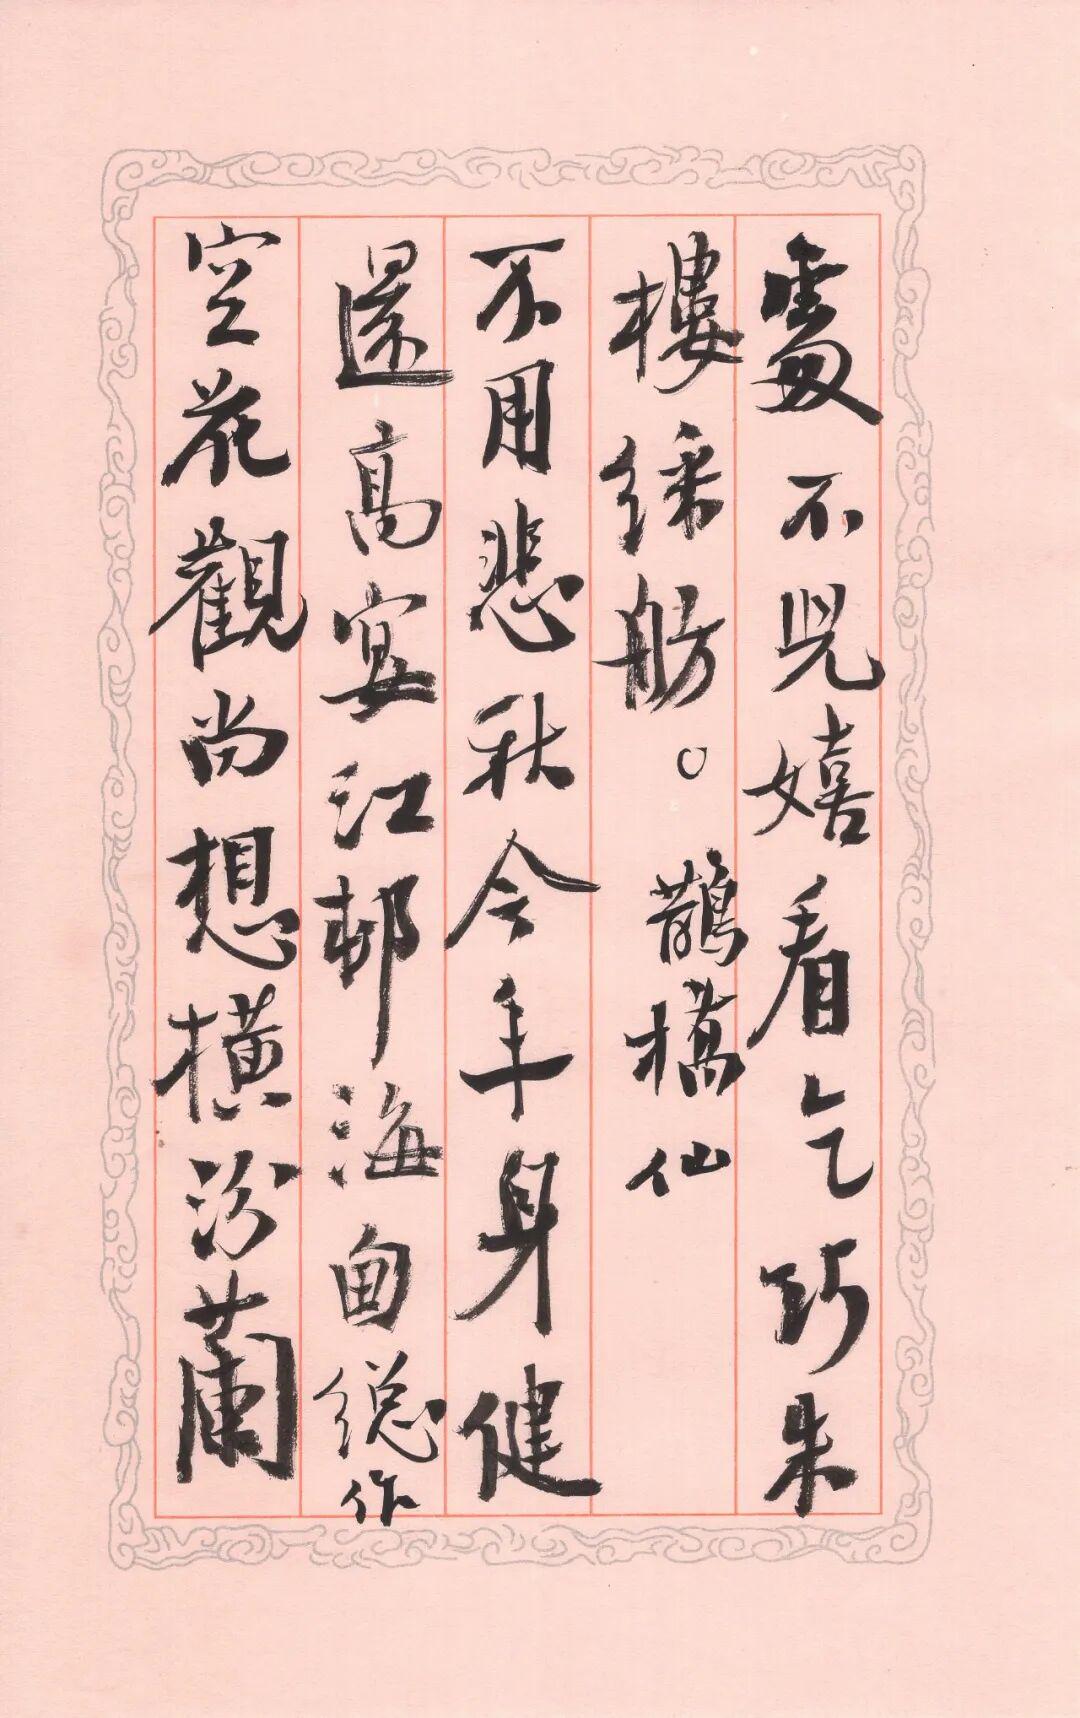 處不兒嬉看乞巧朱
樓綵舫。鵲橋仙
不用悲秋今年身健
還高宴江邨海甸總作
空花觀尚想橫汾蘭